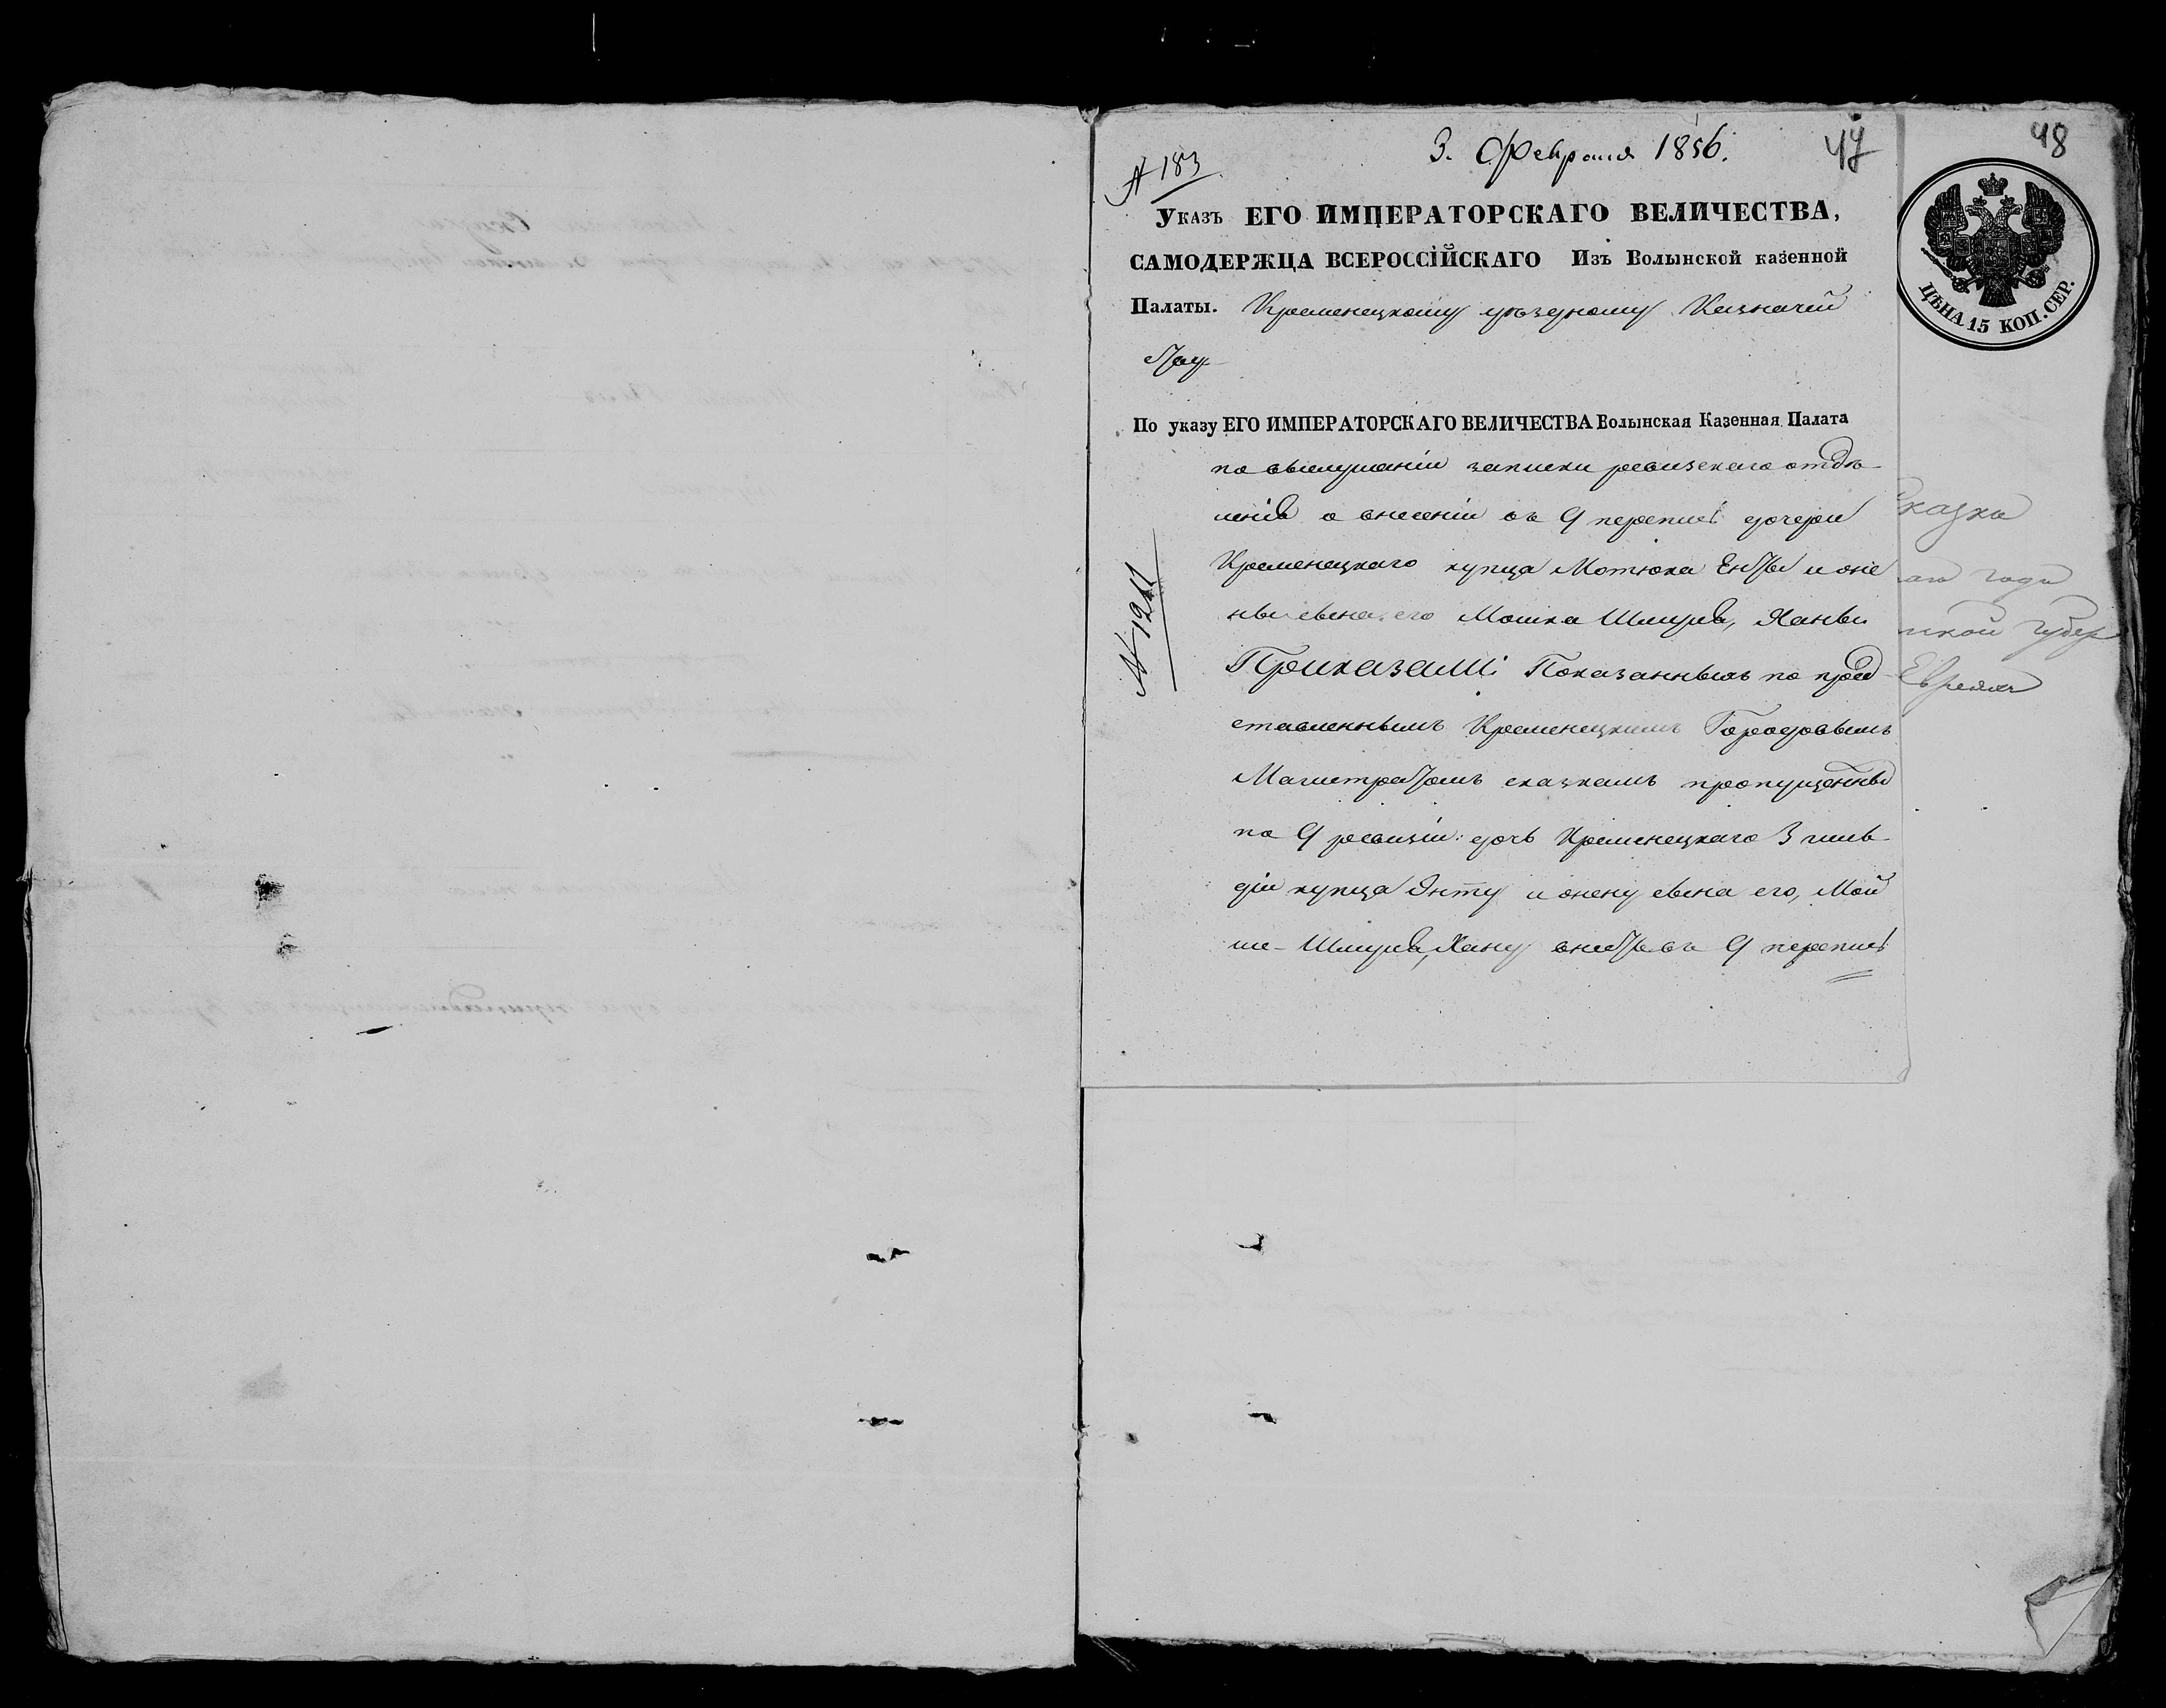 3. Февраля 1856.
47
48
№ 183
Указъ ЕГО ИМПЕРАТОРСКАГО ВЕЛИЧЕСТВА,
САМОДЕРЖЦА ВСЕРОССІЙСКАГО Изъ Волынской казенной
Палаты. Кременецкому уѣздному Казначей
ству
ЦѢНА 15 КОП. СЕР.
По указу ЕГО ИМПЕРАТОРСКАГО ВЕЛИЧЕСТВА Волынская Казенная Палата
по выслушаніи записки ревизскаго отдѣ-
ленія о внесеніи въ 9 перепись дочери
Кременецкаго купца Мотюка Енты и же
ны сына его Мошка Шмуля, Ханы
Приказали: Показаннымъ по пред
ставленнымъ Кременецкимъ Городовымъ
Магистратомъ сказкамъ пропущенны
по 9 ревизіи: дочь Кременецкаго 3 гиль-
діи купца Энту и жену сына его, Мой
ше-Шмуля, Хану внесть въ 9 перепись
№ 1211
Сказка
аго года
нской Губер
Евреяхъ